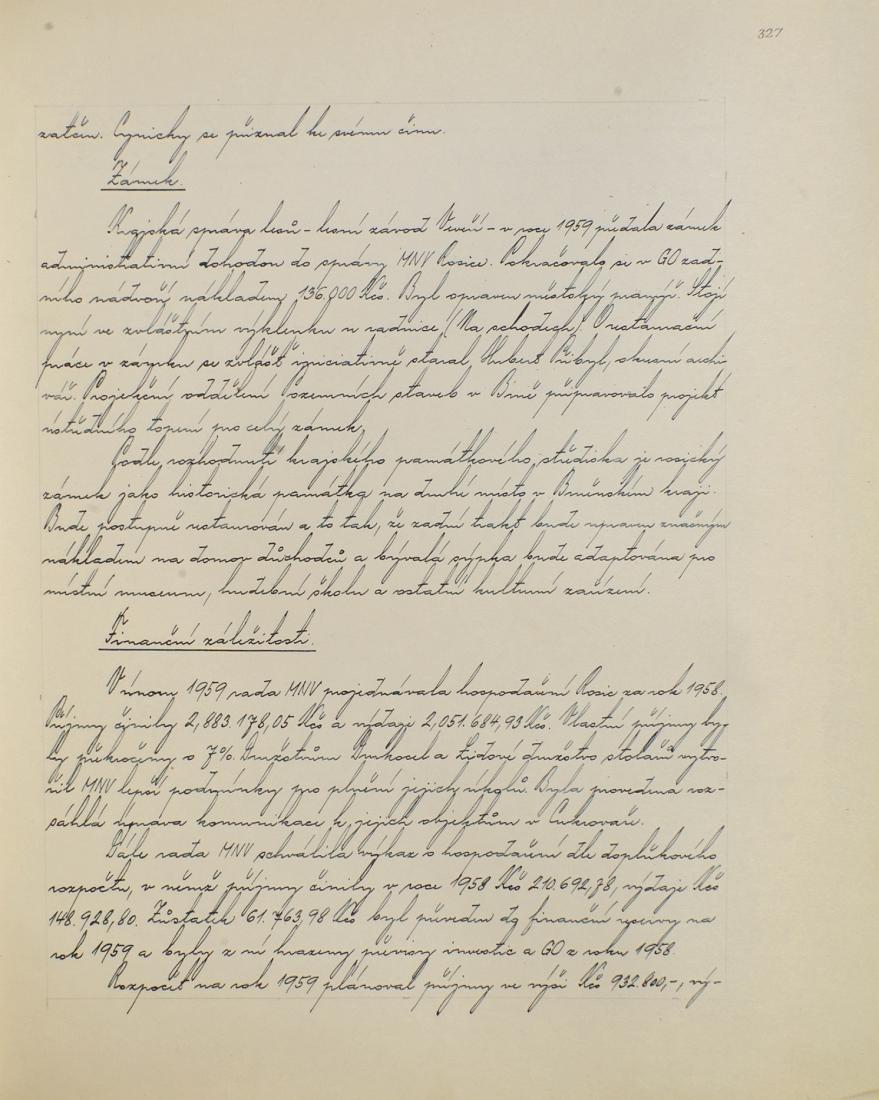 327
zatčen. Cynicky se přiznal ke svému činu.
Zámek.
Krajská správa lesů – lesní závod Veveří – v roce 1959 předala zámek
administrativní dohodou do správy MNV Rosice. Pokračovalo se v GO zad-
ního nádvoří nákladem 136.000 Kčs. Byl opraven městský pranýř. Stojí
nyní ve zvláštním výklenku u radnice (Na schodech). O restaurační
práce v zámku se zvlášť iniciativně staral Hubert Přibyl, okresní archi-
vář. Projekční oddělení Pozemních staveb v Brně připravovalo projekt
ústředního topení pro celý zámek.
Podle rozhodnutí krajského památkového střediska je rosický
zámek jako historická památka na druhé místo v Brněnském kraji.
Bude postupně restaurován a to tak, že zadní trakt bude upraven značným
nákladem na domov důchodců a bývalá sýpka bude adaptována pro
místní museum, hudební školu a ostatní kulturní zařízení.
Finanční záležitosti.
V únoru 1959 rada MNV projednávala hospodaření Rosic za rok 1958.
Příjmy činily 2,883.178,05 Kčs a výdaje 2,051.684,93 Kčs. Vlastní příjmy by-
ly překročeny o 7%. Družstvům Drukocel a Lidové družstvo stolařů vytvo-
řil MNV lepší podmínky pro plnění jejich úkolů. Byla provedena roz-
sáhlá úprava komunikace k jejich objektům v Cukrovaře.
Dále rada MNV schválila výkaz o hospodaření dle doplňkového
rozpočtu, v němž příjmy činily v roce 1958 Kčs 210.692,78, výdaje Kčs
148.928,80. Zůstatek 61.763,98 Kčs byl převeden do finanční reservy na
rok 1959 a byly z ní hrazeny převisy investic a GO z roku 1958.
Rozpočet na rok 1959 plánoval příjmy ve výši Kčs 932.800,-, vý-